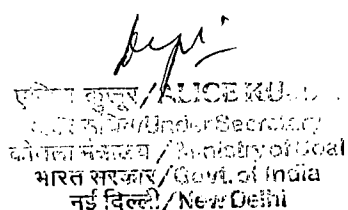 एलिस कुजूर/ALICE KU
/Under Secretary
कोयला मंत्रालय / Ministry of Coal
भारत सरकार/Govt. of India
नई दिल्ली/New Delhi